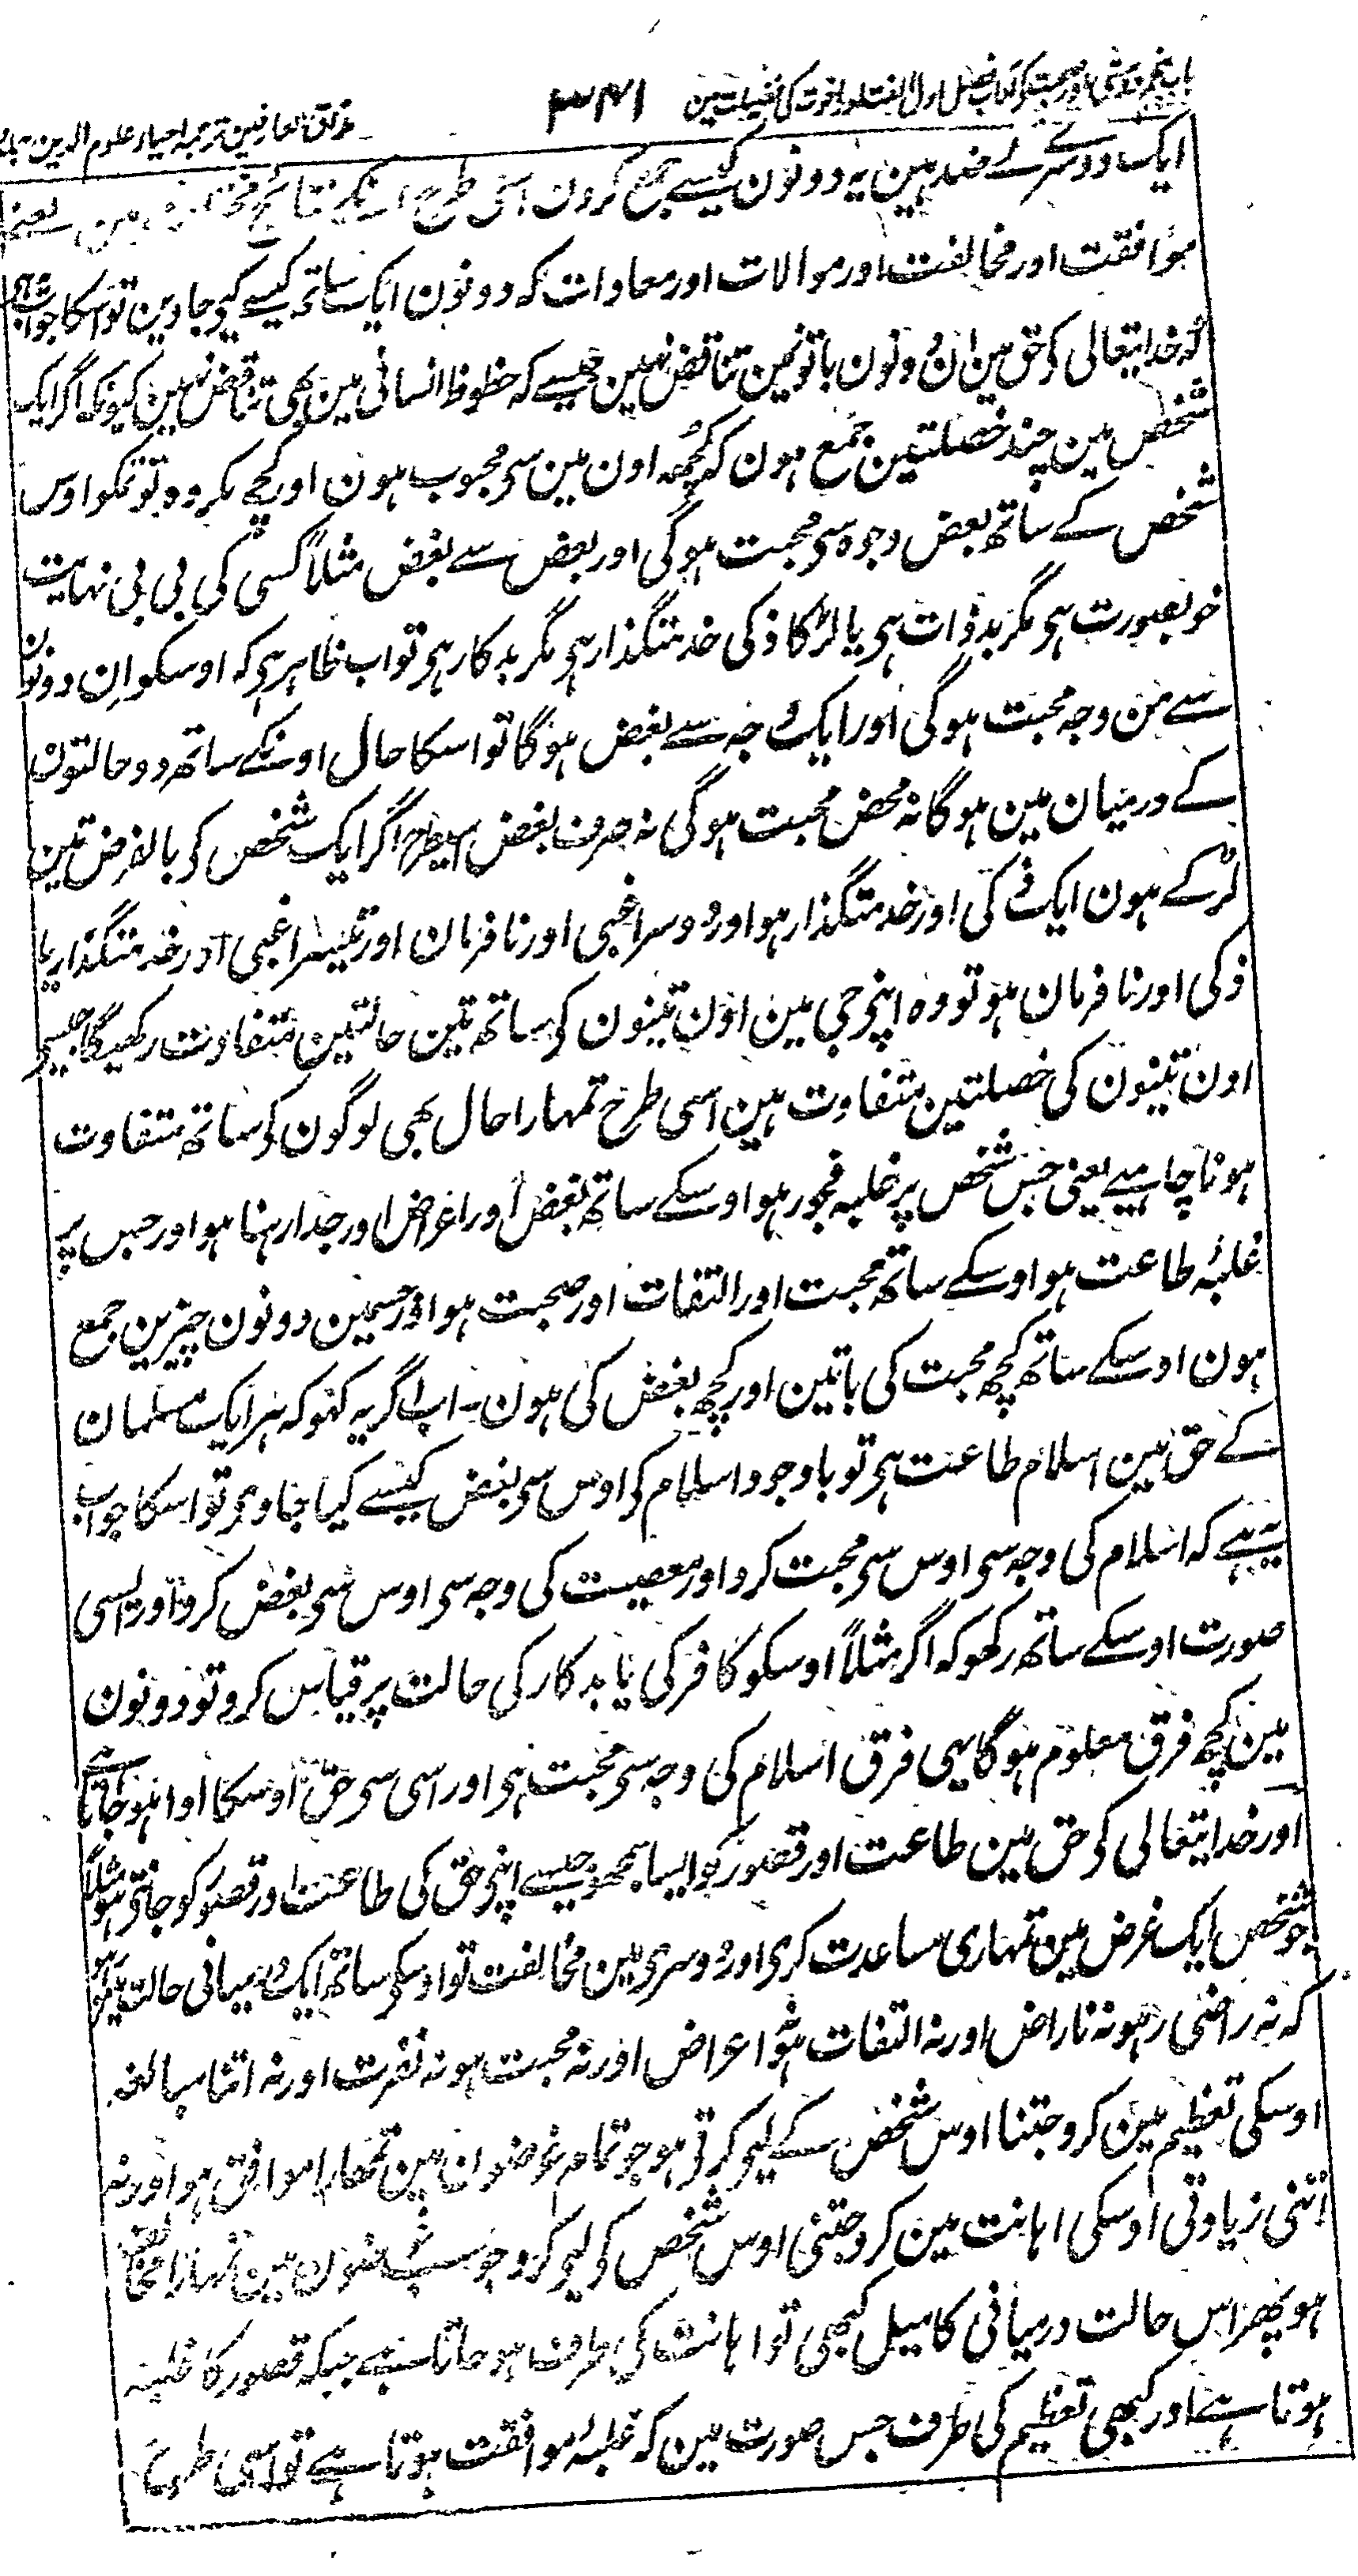 باب پنجم دوستی اور صحبت کے آداب فصل اول الفت اور اخوت کی فضیلت مین ۳۴۱ مذاق العارفین ترجمہ احیاء علوم الدین جلد
ایک دوسرے کے ضد ہین یہ دونون کیسے جمع کرون اسی طرح انکے نتائج مختلف ہین یعنے
موافقت اور مخالفت اور موالات اور معادات کہ دونون ایک ساتھ کیسے کیے جاوین تو اسکا جواب یہ ہی
کہ خدایتعالی کے حق مین ان دونون باتونمین تناقض نہین جیسے کہ حظوظ انسانی مین بھی تناقض نہین کیونکہ اگر ایک
شخص مین چند خصلتین جمع ہون کہ کچھ اون مین سے محبوب ہون اور کچھ مکروہ تو تمکو اوس
شخص کے ساتھ بعض وجوہ سے محبت ہوگی اور بعض سے بغض مثلاً کسی کی بی بی نہایت
خوبصورت ہے مگر بدذات ہے یا لڑکا ذکی خدمتگذار ہے مگر بدکار ہے تو اب ظاہر ہے کہ اوسکو ان دونون
سے من وجہ محبت ہوگی اور ایک وجہ سے بغض ہوگا تو اسکا حال اونکے ساتھ دو حالتون
کے درمیان مین ہوگا نہ محض محبت ہوگی نہ صرف بغض اسیطرح اگر ایک شخص کے بالفرض تین
لڑکے ہون ایک ذکی اور خدمتگذار ہو اور دوسرا غبی اور نافرمان اور تیسرا غبی اور خدمتگذار یا
ذکی اور نافرمان ہو تو وہ اپنے جی مین اون تینون کے ساتھ تین حالتین متفاوت رکھیگا جیسے
اون تینون کی خصلتین متفاوت ہین اسی طرح تمہارا حال بھی لوگون کے ساتھ متفاوت
ہونا چاہیے یعنی جس شخص پر غلبہ فجور ہو اوسکے ساتھ بغض اور اعراض اور جدا رہنا ہو اور جس پر
غلبۂ طاعت ہو اوسکے ساتھ محبت اور التفات اور صحبت ہو اور جسمین دونون چیزین جمع
ہون اوسکے ساتھ کچھ محبت کی باتین اور کچھ بغض کی ہون ۔ اب اگر یہ کہو کہ ہر ایک مسلمان
کے حق مین اسلام طاعت ہے تو باوجود اسلام کے اوس سے بغض کیسے کیا جاوے تو اسکا جواب
یہ ہے کہ اسلام کی وجہ سے اوس سے محبت کرو اور معصیت کی وجہ سے اوس سے بغض کرو اور ایسی
صورت اوسکے ساتھ رکھو کہ اگر مثلاً اوسکو کافر کی یا بدکار کی حالت پر قیاس کرو تو دونون
مین کچھ فرق معلوم ہوگا یہی فرق اسلام کی وجہ سے محبت ہے اور اسی سے حق اوسکا ادا ہو جاتا ہے
اور خدایتعالی کے حق مین طاعت اور قصور کو ایسا سمجھو جیسے اپنے حق کی طاعت اور قصور کو جانتے ہو مثلاً
جو شخص ایک غرض مین تمہاری مساعدت کرے اور دوسری مین مخالفت تو اوسکے ساتھ ایک درمیانی حالت مین رہو
کہ نہ راضی رہو نہ ناراض اور نہ التفات ہو نہ اعراض اور نہ محبت ہو نہ نفرت اور نہ اتنا مبالغہ
اوسکی تعظیم مین کرو جتنا اوس شخص کے لیے کرتے ہو جو تمام غرضون مین تمہارا موافق ہو اور نہ
اتنی زیادتی اوسکی اہانت مین کرو جتنی اوس شخص کے لیے کرو جو سب غرضون مین تمہارا مخالف
ہو پھر اس حالت درمیانی کا میل کبھی تو اہانت کی طرف ہو جاتا ہے جبکہ قصور کا غلبہ
ہوتا ہے اور کبھی تعظیم کی طرف جس صورت مین کہ غلبۂ موافقت ہوتا ہے تو اسی طرح